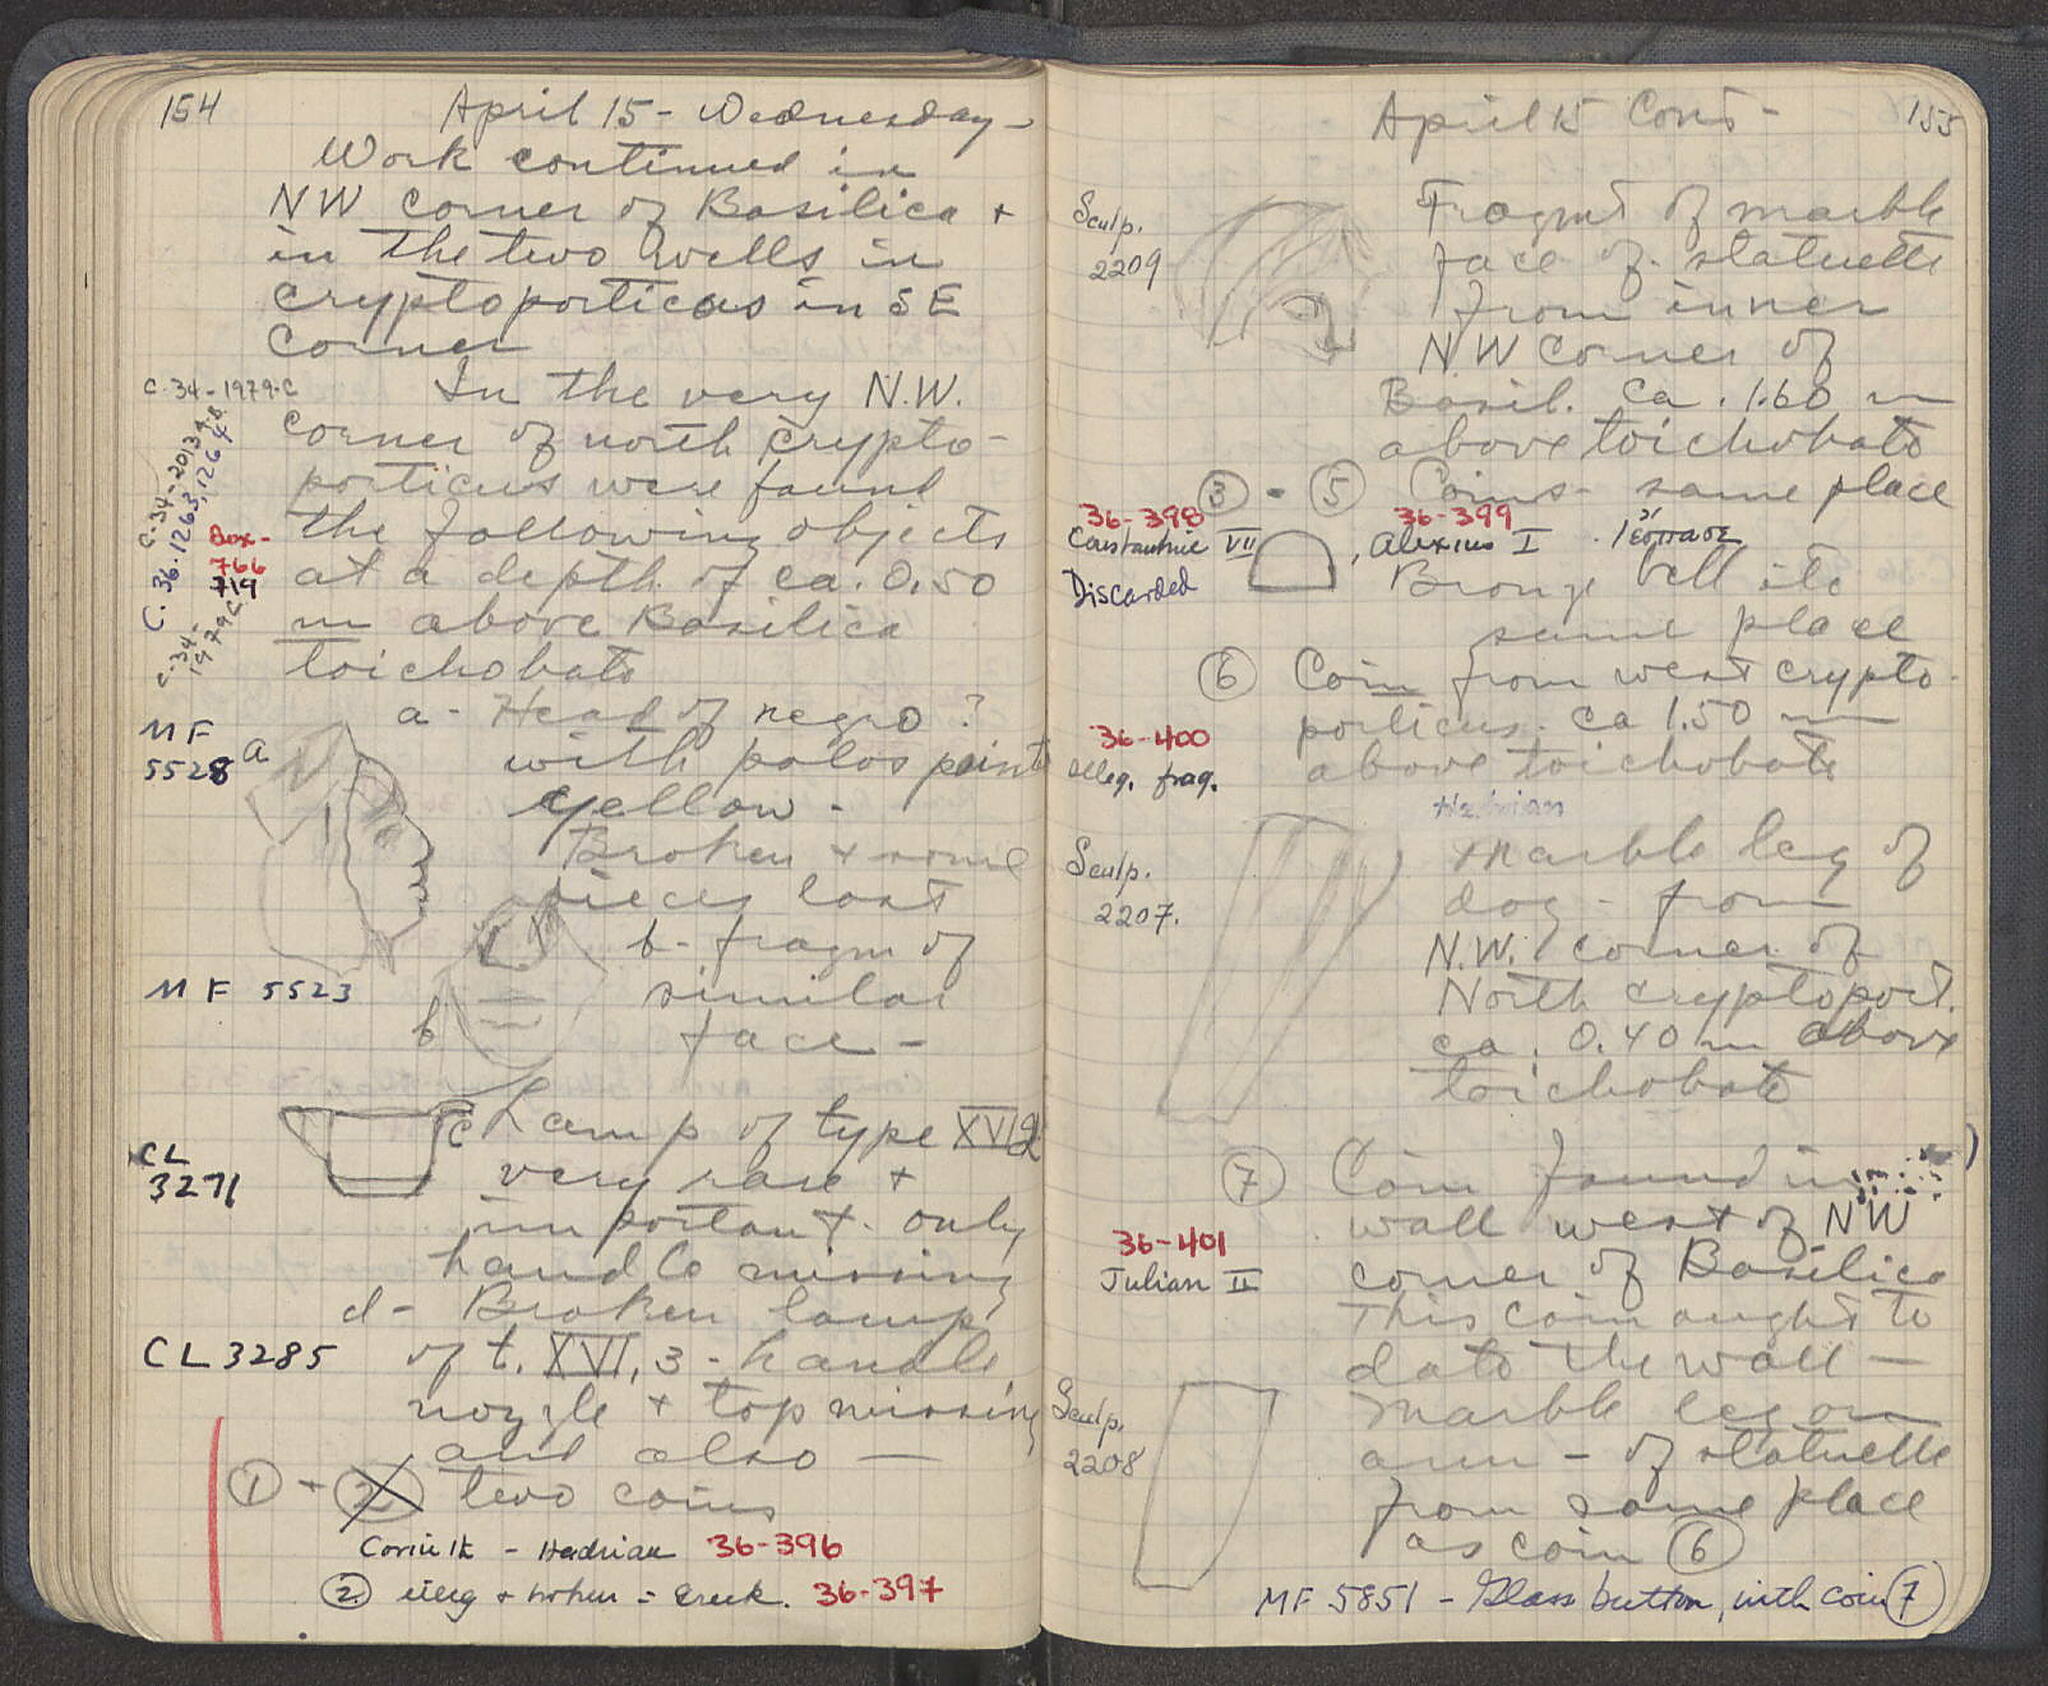 154
April 15 - Wednesday -
Work continued in
NW corner of Basilica +
in the two wells in
cryptoporticus in SE
corner
C. 34 - 1979.C
In the very N.W.
corner of north crypto-
porticus were found
the following objects
at a depth of ca. 0.50
m above Basilica
toichobate
C. 34 - 2013
C. 36. 1263, 1264
Box -
766
719
C. 34 -
1979C
a - Head of negro ?
with polos paint
yellow -
Broken + some
pieces lost
MF
5528
a
b - fragm of
similar
face -
MF 5523
b
c Lamp of type XVI
very rare +
important. only
handle missing
CL
3271
d - Broken lamp
of t. XVI, 3 - handle,
nozzle + top missing
and also —
CL 3285
① + ② two coins
Corinth - Hadrian 36-396
② illeg + broken = Greek. 36-397
April 15 Cont -
155
Sculp.
2209
Fragmt of marble
face of statuette
from inner
NW corner of
Basil. ca. 1.60 m
above toichobate
③ - ⑤ Coins - same place
36-398
Constantine VII
36-399
, Alexius I
Discarded
Bronze bell etc
same place
⑥ Coin from west crypto-
porticus. ca 1.50 m
above toichobate
36-400
illeg. frag.
Hadrian
Sculp.
2207.
Marble leg of
dog - from
N.W. corner of
North cryptoport.
ca. 0.40 m above
toichobate
⑦ Coin found in
wall west of NW
corner of Basilica
This coin ought to
date the wall —
36-401
Julian II
Sculp.
2208
Marble leg or
arm - of statuette
from same place
as coin ⑥
MF 5851 - Glass button, with coin ⑦